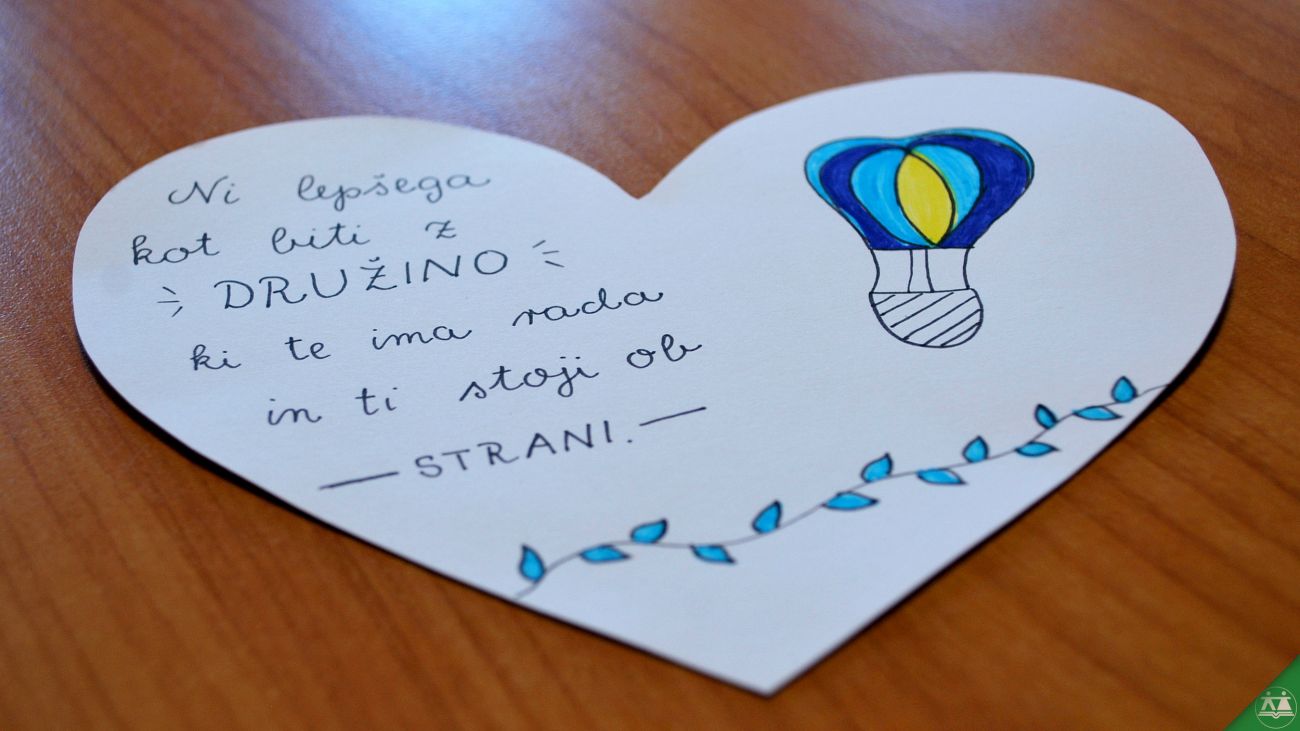 Ni lepšega
kot biti z
DRUŽINO
ki te ima rada
in ti stoji ob
— STRANI. —